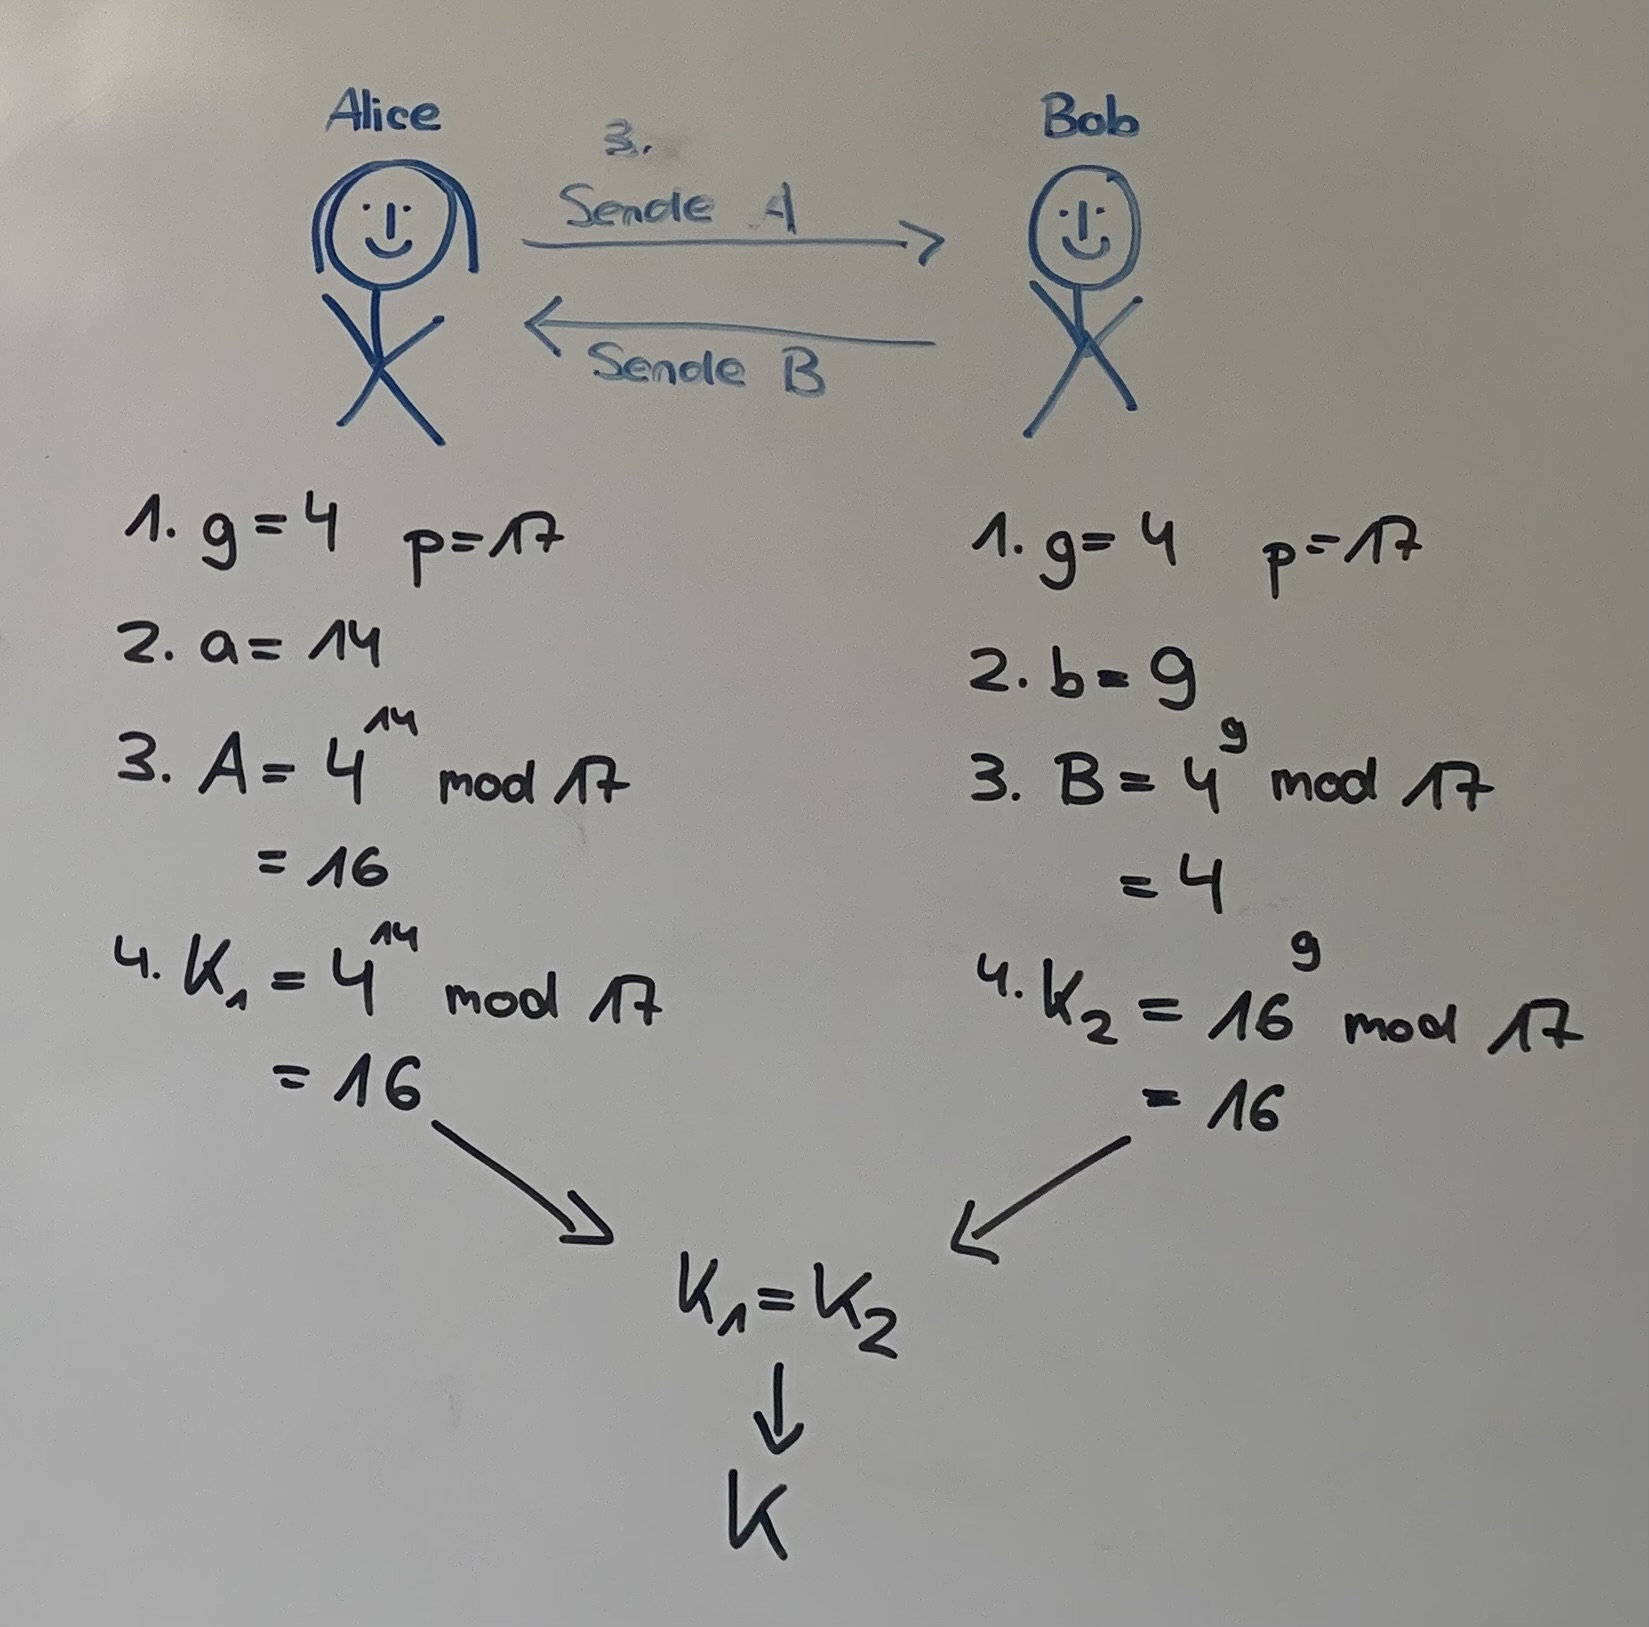 Alice
Bob
3.
Sende A
Sende B
1. g=4 p=17
2. a= 14
3. A= 4^14 mod 17
= 16
4. K₁ = 4^14 mod 17
= 16
1. g= 4 p=17
2. b= 9
3. B= 4^9 mod 17
= 4
4. K₂ = 16^9 mod 17
= 16
K₁=K₂
↓
K